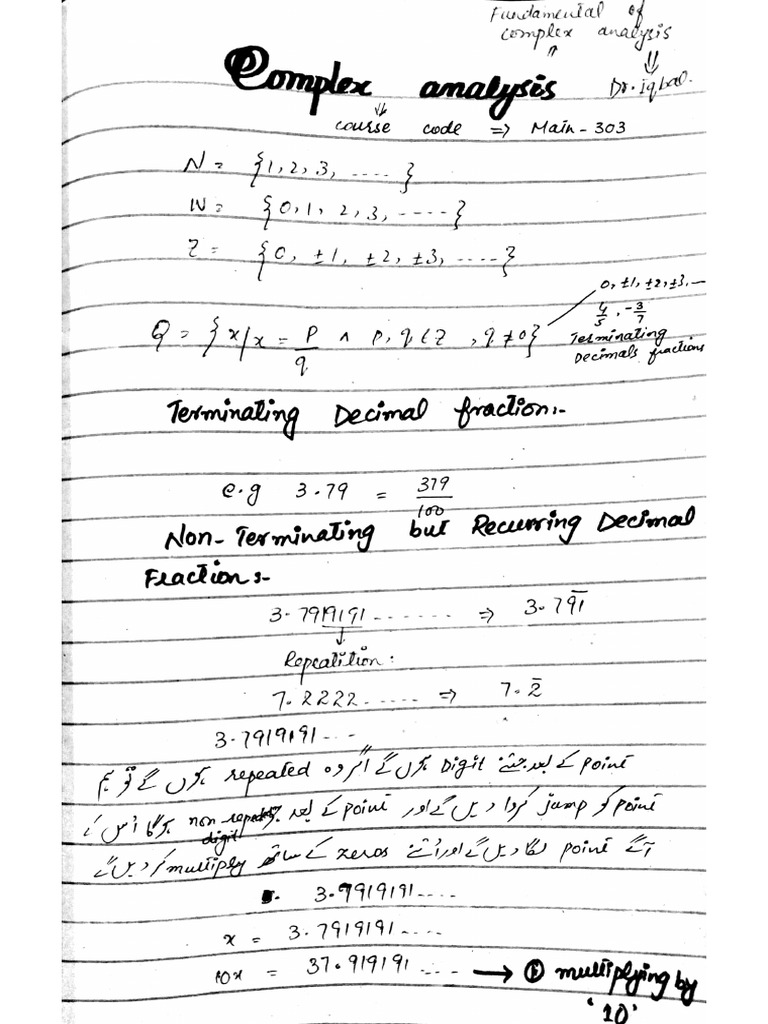 Fundamental of
complex analysis
Complex analysis
Dr. iqbal.
course code => Main - 303
N = {1, 2, 3, ....}
W = {0, 1, 2, 3, .....}
Z = {0, ±1, ±2, ±3, ....}
0, ±1, ±2, ±3, ...
4/5, -3/7
Q = {x/x = p/q ∧ p, q ∈ Z, q ≠ 0}
Terminating
Decimals fractions
Terminating Decimal fraction:-
e.g 3.79 = 379/100
Non-Terminating but Recurring Decimal
Fraction:-
3.7919191....... => 3.79̄1̄
Repeatition:
7.2222...... => 7.2̄
3.7919191...
point کے بعد جتنے Digit ہوں گے اگر وہ repeated ہوں گے تو ہم
point کو jump کروا دیں گے اور point کے بعد جو non repeated digit ہوگا اس کے
آگے point لگا دیں گے اور اتنے zeros کے ساتھ multiply کر دیں گے
3.7919191....
x = 3.7919191....
10x = 37.919191.... → ① multiplying by
'10'